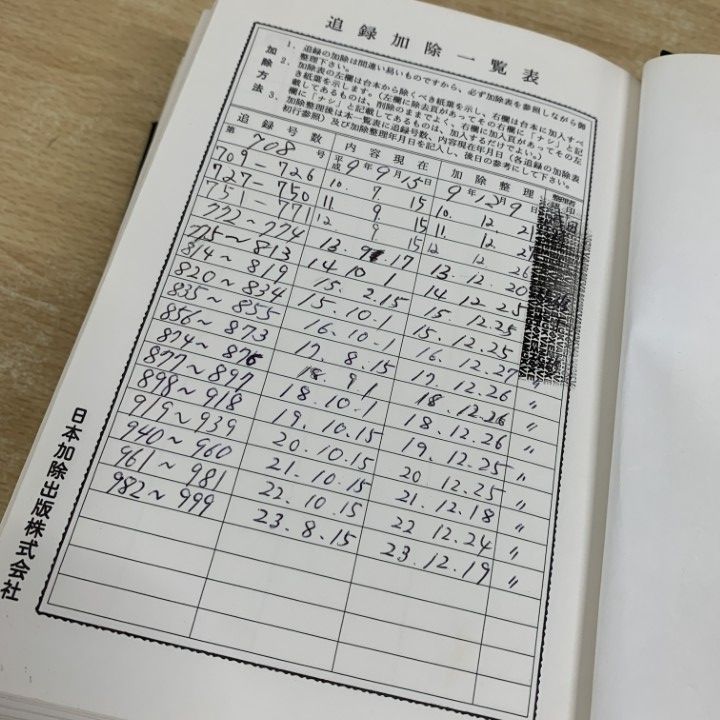 追録加除一覧表
加除方法
1. 追録の加除は間違い易いものですから、必ず加除表を参照しながら御
整理下さい。
2. 加除表の左欄は台本から除くべき紙葉を示し、右欄は台本に加入すべ
き紙葉を示します。(左欄に除去頁があってその右欄に「ナシ」と記
載してあるものは、削除のままでよく、右欄に加入頁があってその左
欄に「ナシ」と記載してあるものは、加入するだけでよい。)
3. 加除整理後は本一覧表に追録号数、内容現在年月日(各追録の加除表
初行参照)及び加除整理年月日を記入し、後日の参考にして下さい。
追録号数 内容現在 加除整理 整理者認印
第708号 平成9年9月15日 9年12月9日
709-726 10. 7 15 10. 12. 21
727-750 11. 9. 15 11. 12. 21
751-771 12. 9 15 12 12. 26
772~774 13. 9.17 13. 12. 20
775~813 14 10 1 14 12. 25
814~819 15. 2.15 15. 12.25
820~834 15.10.1 15.12.25
835~855 16.10-1 16.12.27
856~873 17. 8.15 17.12.26 〃
874~876 18. 9 1 18.12.26 〃
877~897 18.10.1 18.12.26 〃
898~918 19.10.15 19.12.25 〃
919~939 20.10.15 20 12.25 〃
940~960 21.10.15 21.12.18 〃
961~981 22.10.15 22 12.24 〃
982~999 23.8.15 23.12.19 〃
日本加除出版株式会社